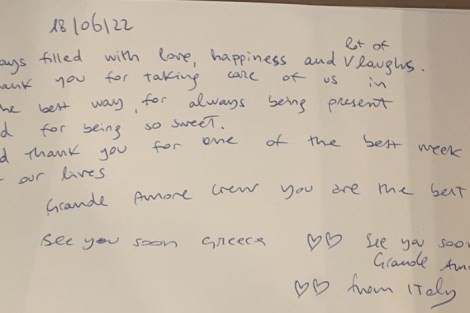 18/06/22
ays filled with love, happiness and lot of laughs.
ank you for taking care of us in
he best way, for always being present
d for being so sweet.
d thank you for one of the best week
our lives
Grande Amore crew you are the best
See you soon Greece ♡♡ See you soo
Grande Am
♡♡ from ITaly